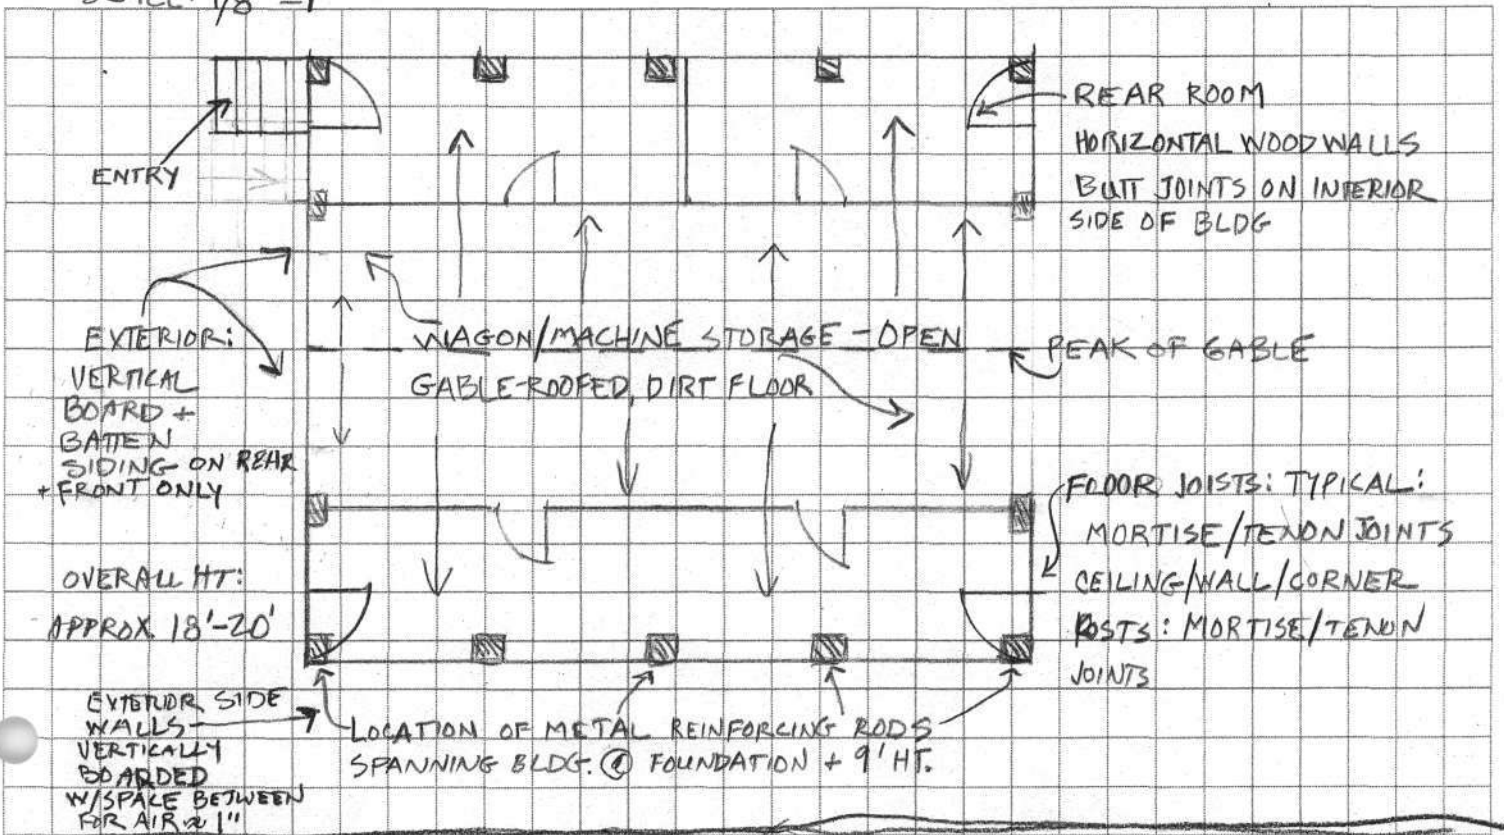 1/8" = 1'
ENTRY
REAR ROOM
HORIZONTAL WOOD WALLS
BUTT JOINTS ON INTERIOR
SIDE OF BLDG
EXTERIOR:
VERTICAL
BOARD +
BATTEN
SIDING ON REAR
+ FRONT ONLY
WAGON/MACHINE STORAGE - OPEN
GABLE-ROOFED, DIRT FLOOR
PEAK OF GABLE
OVERALL HT:
APPROX. 18'-20'
FLOOR JOISTS: TYPICAL:
MORTISE/TENON JOINTS
CEILING/WALL/CORNER
POSTS: MORTISE/TENON
JOINTS
EXTERIOR SIDE
WALLS
VERTICALLY
BOARDED
W/SPACE BETWEEN
FOR AIR ≈ 1"
LOCATION OF METAL REINFORCING RODS
SPANNING BLDG. @ FOUNDATION + 9' HT.